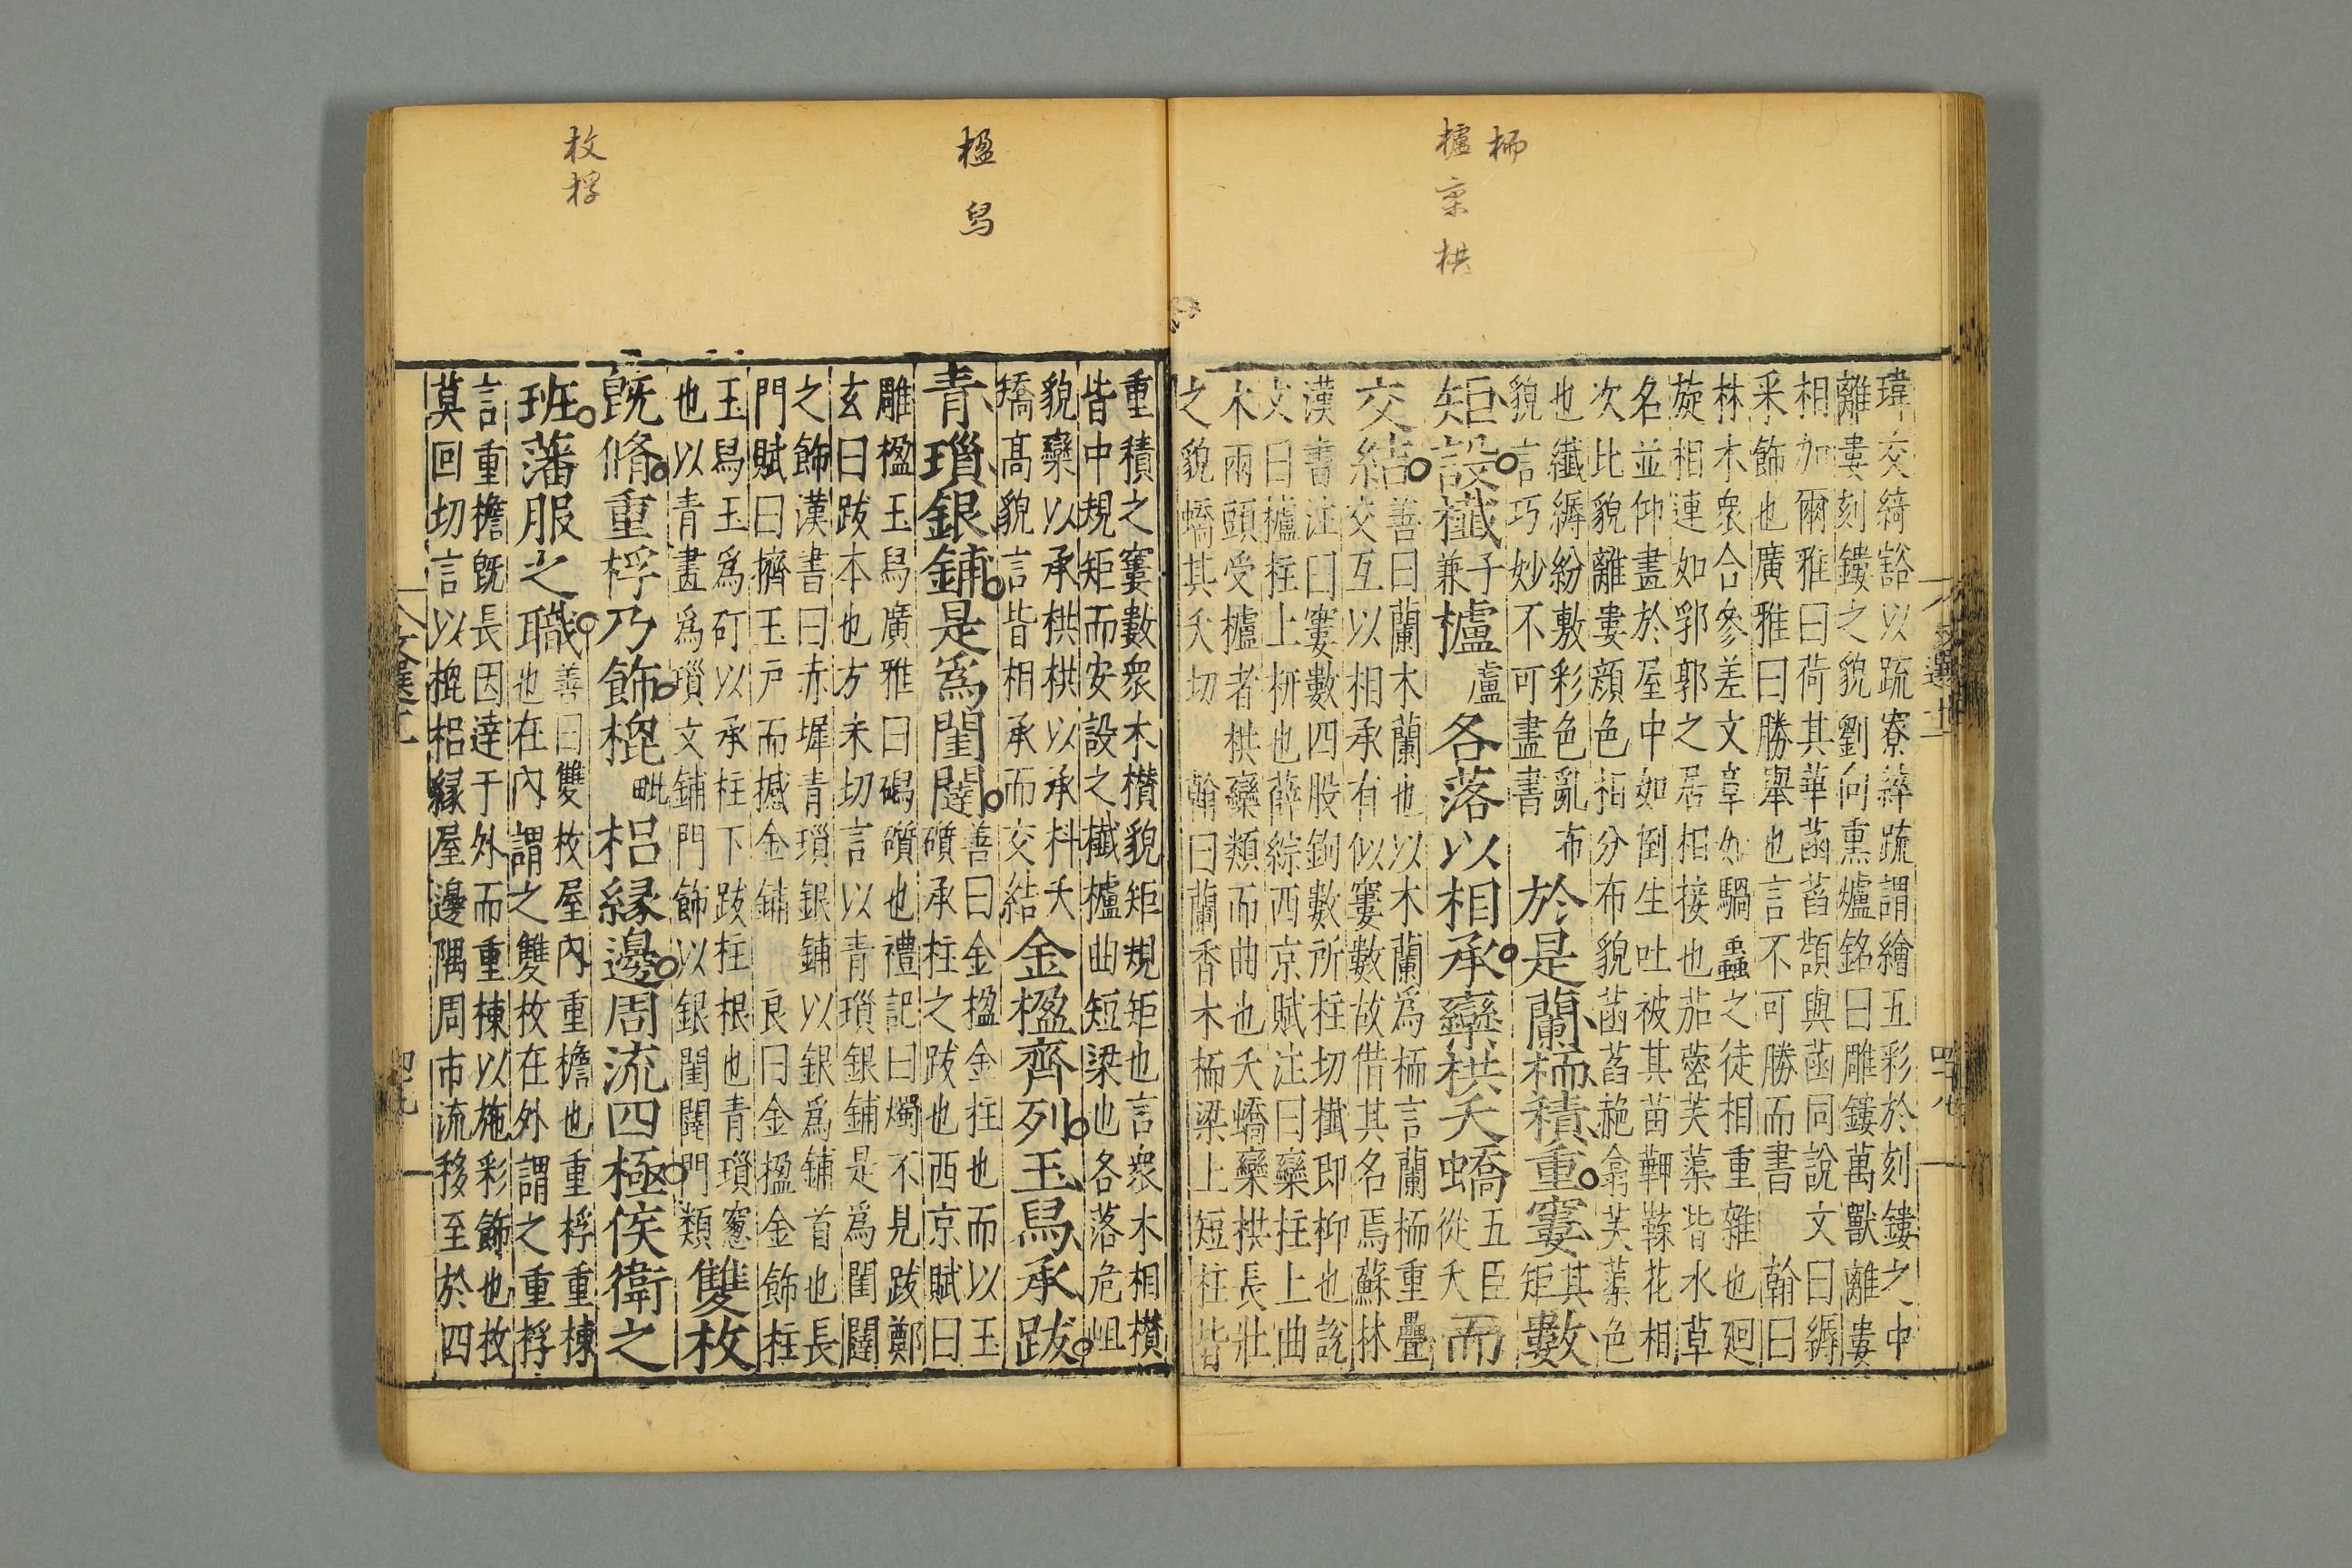 栭
櫨
栱
瑋交綺豁以疏寮綷疏謂繪五彩於刻鏤之中
離婁刻鏤之貌劉向熏爐銘曰雕鏤萬獸離婁
相加爾雅曰荷其華菡萏顉與菡同說文曰縟
采飾也廣雅曰勝舉也言不可勝而書 翰曰
林木衆合參差文章如騧蟲之徒相重雜也迴
旋相連如郛郭之居相接也茄蔤芙蕖皆水草
名並仰畫於屋中如倒生吐被其苗鞞鞢花相
次比貌離婁顔色相分布貌菡萏赩翕芙蕖色
也纖縟紛敷彩色亂布
貌言巧妙不可盡書
於是蘭栭積重窶其矩數
矩設櫼子兼櫨盧各落以相承欒栱夭蟜五臣從夭而
交結
善曰蘭木蘭也以木蘭爲栭言蘭栭重疊
交互以相承有似窶數故借其名焉蘇林
漢書注曰窶數四股鉤數所拄切櫼即枊也說
文曰櫨柱上枅也薛綜西京賦注曰欒柱上曲
木兩頭受櫨者栱欒類而曲也夭蟜欒栱長壯
之貌蟜其夭切 翰曰蘭香木栭梁上短柱皆
文選十一
四十八
楹舃
重積之窶數衆木欑貌矩規矩也言衆木相欑
皆中規矩而安設之櫼櫨曲短梁也各落危岨
貌欒以承栱栱以承枓夭
矯高貌言皆相承而交結
金楹齊列玉舃承跋
青瑣銀鋪是爲閨闥
善曰金楹金柱也而以玉
礩承柱之跋也西京賦曰
雕楹玉舃廣雅曰碣礩也禮記曰燭不見跋鄭
玄曰跋本也方末切言以青瑣銀鋪是爲閨闥
之飾漢書曰赤墀青瑣銀鋪以銀爲鋪首也長
門賦曰擠玉戶而撼金鋪 良曰金楹金飾柱
玉舃玉爲矴以承柱下跋柱根也青瑣窻
也以青畫爲瑣文鋪門飾以銀閨闥門類
雙枚
旣脩重桴乃飾槐毗梠緣邊周流四極侯衛之
班藩服之職
善曰雙枚屋內重檐也重桴重棟
也在內謂之雙枚在外謂之重桴
言重檐旣長因達于外而重棟以施彩飾也枚
莫回切言以槐梠緣屋邊隅周帀流移至於四
枚桴
文選十一
四十九